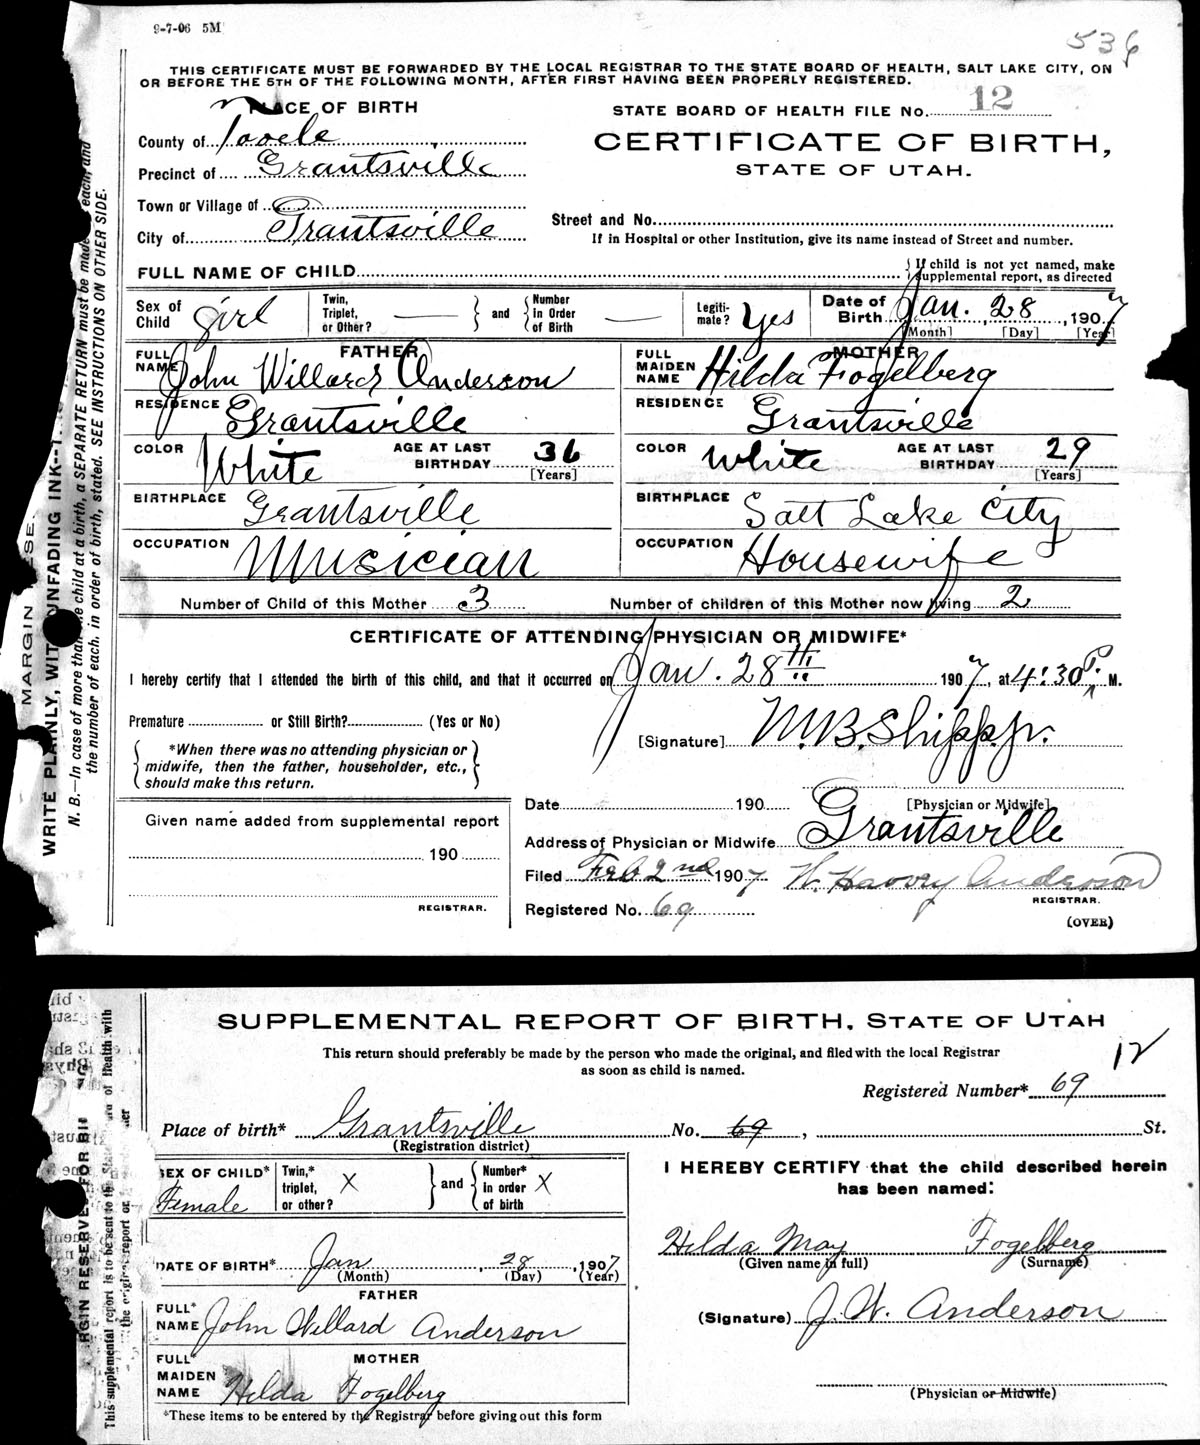 9-7-06 5M
536
THIS CERTIFICATE MUST BE FORWARDED BY THE LOCAL REGISTRAR TO THE STATE BOARD OF HEALTH, SALT LAKE CITY, ON
OR BEFORE THE 5TH OF THE FOLLOWING MONTH, AFTER FIRST HAVING BEEN PROPERLY REGISTERED.
PLACE OF BIRTH
STATE BOARD OF HEALTH FILE No. 12
County of Tooele
CERTIFICATE OF BIRTH,
Precinct of Grantsville
STATE OF UTAH.
Town or Village of
City of Grantsville
Street and No.
If in Hospital or other Institution, give its name instead of Street and number.
FULL NAME OF CHILD
If child is not yet named, make
supplemental report, as directed
Sex of Child girl
Twin, Triplet, or Other? —
and
Number In Order of Birth —
Legiti- mate? Yes
Date of Birth Jan. 28, 1907
[Month] [Day] [Year]
FATHER
FULL NAME John Willard Anderson
RESIDENCE Grantsville
COLOR White
AGE AT LAST BIRTHDAY 36
[Years]
BIRTHPLACE Grantsville
OCCUPATION Musician
MOTHER
FULL MAIDEN NAME Hilda Fogelberg
RESIDENCE Grantsville
COLOR White
AGE AT LAST BIRTHDAY 29
[Years]
BIRTHPLACE Salt Lake City
OCCUPATION Housewife
Number of Child of this Mother 3
Number of children of this Mother now living 2
CERTIFICATE OF ATTENDING PHYSICIAN OR MIDWIFE*
I hereby certify that I attended the birth of this child, and that it occurred on Jan. 28th 1907, at 4:30 P. M.
Premature or Still Birth? (Yes or No)
[Signature] M.B. Shipp Jr.
*When there was no attending physician or
midwife, then the father, householder, etc.,
should make this return.
[Physician or Midwife]
Date 190
Given name added from supplemental report
190
REGISTRAR.
Address of Physician or Midwife Grantsville
Filed Feb 2nd 1907 W. Harvey Anderson
REGISTRAR.
Registered No. 69
(OVER)
MARGIN
WRITE PLAINLY, WITH UNFADING INK--
N. B.—In case of more than one child at a birth, a SEPARATE RETURN must be made each, and
the number of each, in order of birth, stated. SEE INSTRUCTIONS ON OTHER SIDE.
SUPPLEMENTAL REPORT OF BIRTH, STATE OF UTAH
This return should preferably be made by the person who made the original, and filed with the local Registrar
as soon as child is named.
12
Registered Number* 69
Place of birth* Grantsville No. 69, St.
(Registration district)
SEX OF CHILD* Female
Twin,* triplet, or other? X
and
Number* in order of birth X
I HEREBY CERTIFY that the child described herein
has been named:
Hilda May Fogelberg
(Given name in full) (Surname)
DATE OF BIRTH* Jan 28, 1907
(Month) (Day) (Year)
FATHER
FULL* NAME John Willard Anderson
(Signature) J. W. Anderson
MOTHER
FULL* MAIDEN NAME Hilda Fogelberg
(Physician or Midwife)
*These items to be entered by the Registrar before giving out this form
This supplemental report is to be sent to the State of Health with
the original report or